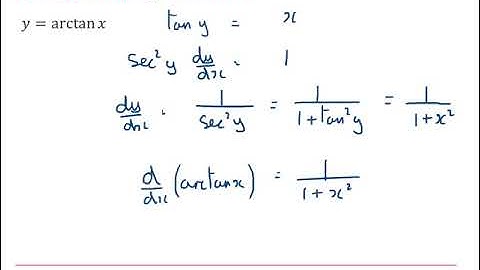 y = arctan x tan y = x
sec² y dy/dx = 1
dy/dx = 1/sec² y = 1/1 + tan² y = 1/1 + x²
d/dx (arctan x) = 1/1 + x²